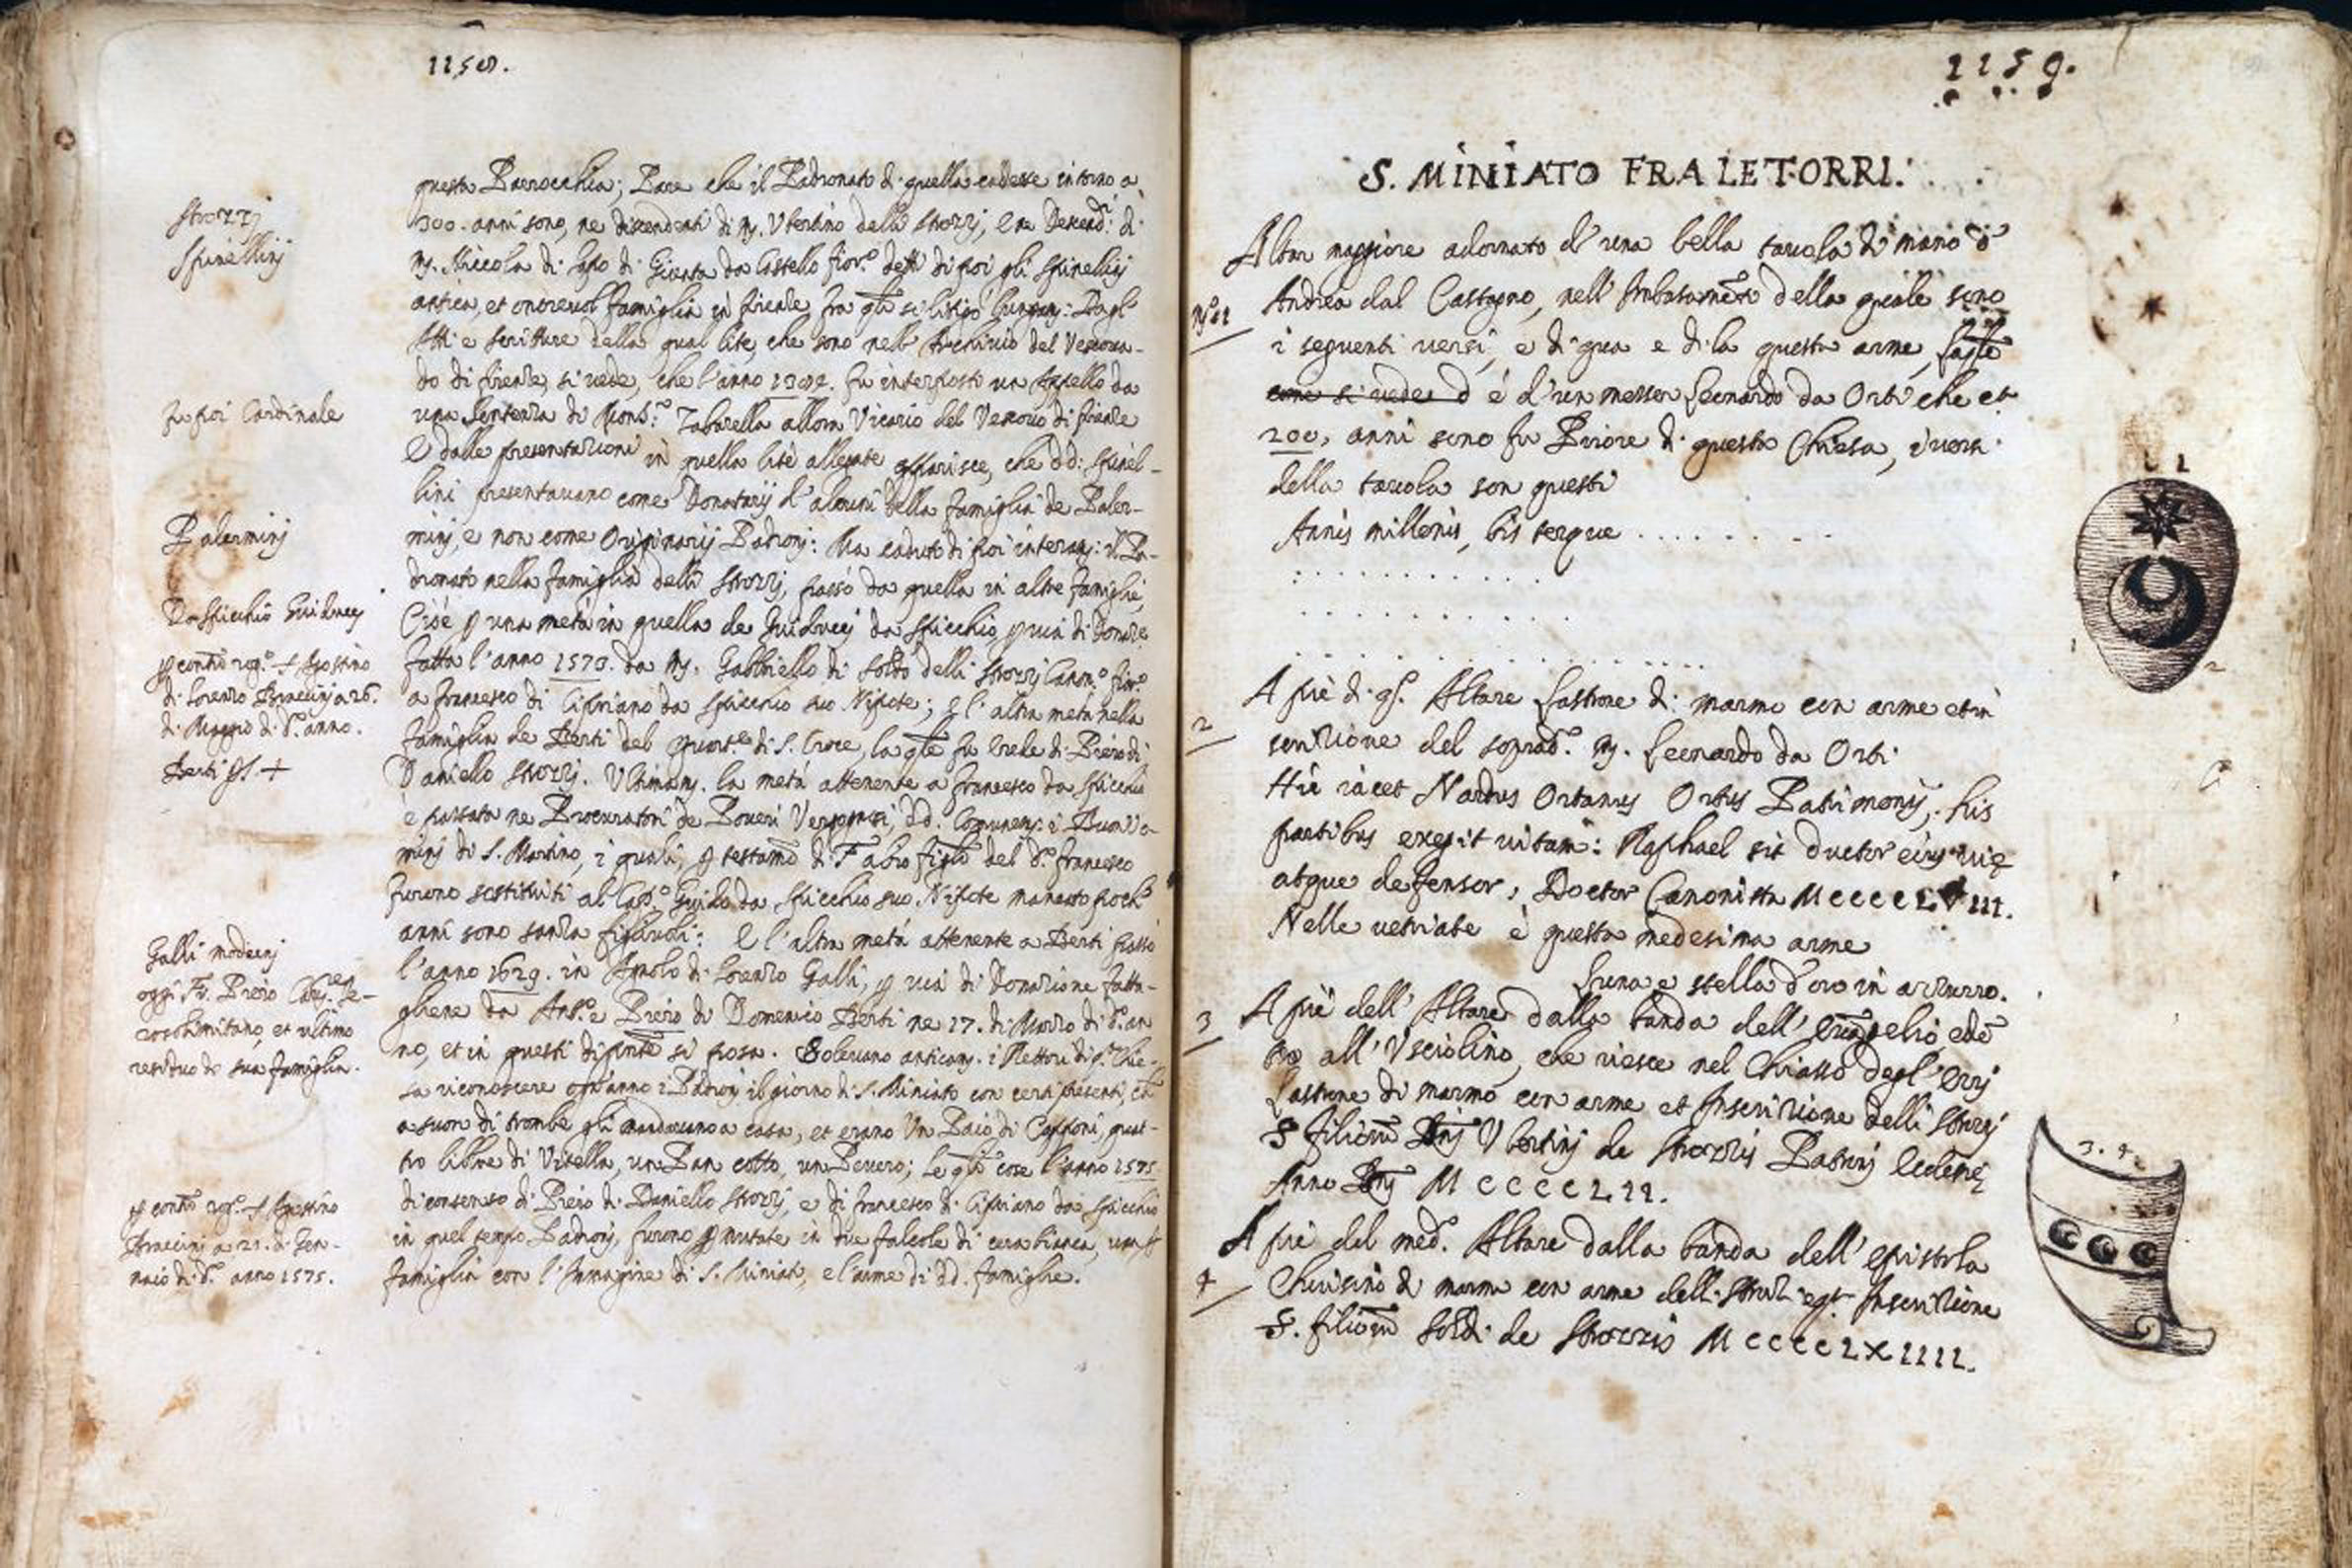 1158.
questa Parrocchia; Pare che il Padronato di quella cadesse intorno a
300. anni sono, ne discendenti di M. Ubertino delli Strozzj, e ne Descend.ti di
Strozzj
Spinellinj
M. Niccola di Lapo di Giunta da Castello fior.o detti di poi gli Spinellinj
antica, et onorevol famiglia in firenze fra gli si litigò lungam: Dagl'
Atti e scritture della qual lite, che sono nell' Archivio del Vescova-
do di firenze, si vede, che l'anno fu interposto un Appello da
fu poi Cardinale
una sentenza di Mons.r Zabarella allora Vicario del Vescovo di firenze
E dalle presentazioni in quella lite allegate apparisce, che dd: Spinel-
lini presentavano come Donatarij d'alcuni della famiglia de Paler-
Palerminj
minj, e non come Originarij Padronj: Ma caduto di poi interam: il Pa-
dronato nella famiglia delli Strozzj, passò da quella in altre famiglie,
Da Spicchio Guiducej
Cioè p una metà in quella de Guiducej da Spicchio p via di Donaz.e
p contto rog.o S. Agostino
fatta l'anno 1573. da M. Gabbriello di Soldo delli Strozzj Canon.o fior.o
di Lorenzo Braccinj a 26.
a francesco di Cipriano da Spicchio suo Nipote; e l'altra metà nella
di Maggio di d.o anno.
famiglia de Berti del Quart.e di S. Croce, la qle fu Erede di Piero di
Berti S. +
Daniello Strozzj. Ultimam. la metà attenente a francesco da Spicchio
è passata ne Procuratori de Poveri Vergognosi, dd. Comunem: i Buon'vo-
minj di S. Martino, i quali, p testamo di Fabio figlo del d.o francesco
furono sostituiti al Cap.o Guido da Spicchio suo Nipote mancato pochi
anni sono sanza figliuoli: E l'altra metà attenente a Berti passò
Galli moderni
l'anno 1629. in Agnolo di Lorenzo Galli, p via di Donazione fatta-
oggi Fr. Piero Ge-
gliene da Ant.o e Piero di Domenico Berti ne 17. di Marzo di d.o an
rosolimitano, et ultimo
no, et in questi di pnte si posa. Solevano anticam. i Rettori di q.a Chie-
residuo di sua famiglia.
sa riconoscere ogn'anno i Padronj il giorno di S. Miniato con certi presenti, ch
a suon di trombe gli mandavano a casa, et erano Un Paio di Capponi, quat-
tro libbre di Vitella, un Pan cotto, un Pevero; Le qli cose l'anno 1575
di consenso di Piero di Daniello Strozzj, e di francesco di Cipriano da Spicchio
p contto rog.o S. Agostino
in quel tempo Padronj, furono pmutate in due falcole di cera bianca, una p
Braccinj a 21. di Gen-
famiglia con l'Immagine di S. Miniato, e l'arme di dd. famiglie.
naio di d.o anno 1575.
1159.
S. MINIATO FRA LE TORRI.
Altar maggiore adornato d'una bella tavola di mano d'
N.o 1
Andrea dal Castagno, nell'Imbasamento della quale sono
i seguenti versi, e di qua e di la questa arme,
come si vede d è d'un messer Leonardo da Orti che
200, anni sono fu Priore di questa Chiesa, i versi
della tavola son questi
Annis millenis, bis terque . . . . . . . .
1
A piè di q.o Altare Lastrone di marmo con arme et in
2
scrizione del soprad.o M. Leonardo da Orti
Hic iacet Nardus Ortanus Ortus Patrimonij, his
partibus exegit vitam: Raphael sit ductor eius vię
atque defensor, Doctor Canonista MCCCCLVIII.
Nelle vetriate è questa medesima arme
Luna e stella d'oro in azzurro.
A piè dell' Altare dalla banda dell' Evangelio,
3
all' Usciolino, che riesce nel Chiasso degl' Errj
Lastrone di marmo con arme et Inscrizione delli Strozzj
S filiorum Dnj Ubertinj de Strozzis Patronj Ecclesię
Anno Dnj MCCCCLII.
3. 4.
A piè del med.o Altare dalla banda dell' epistola
4
Chiusino di marmo con arme delli Strozzi Inscrizione
S. filiorum Soldi de Strozzis MCCCCLXIIII.